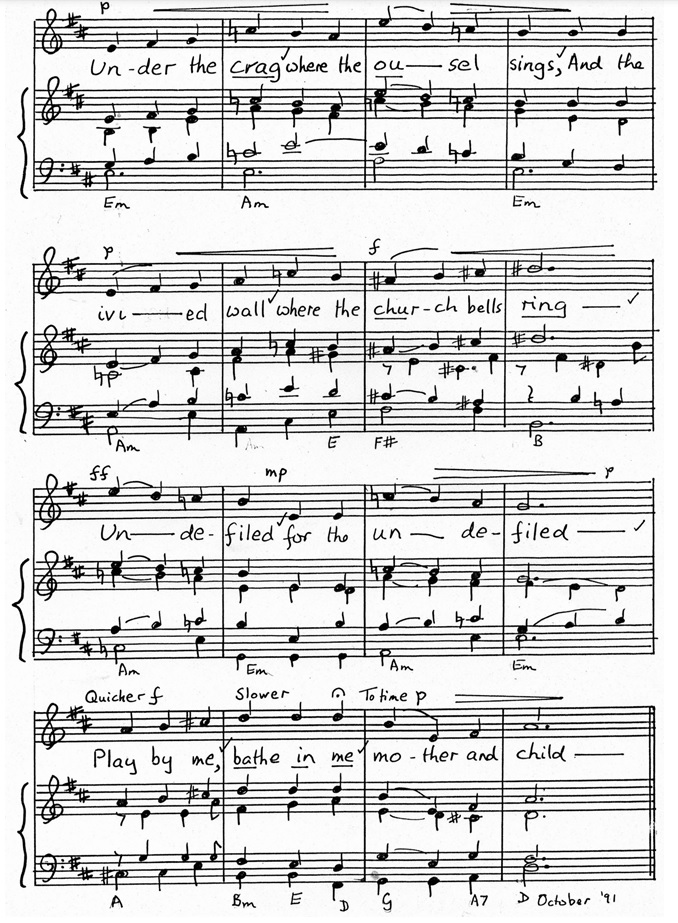 p
Un-der the crag where the ou-sel sings, And the
Em Am Em
p f
ivi-ed wall where the chur-ch bells ring
Am Am E F# B
ff mp p
Un-de-filed for the un-de-filed
Am Em Am Em
Quicker f Slower To time p
Play by me, bathe in me mo-ther and child
A Bm E D G A7 D October '91